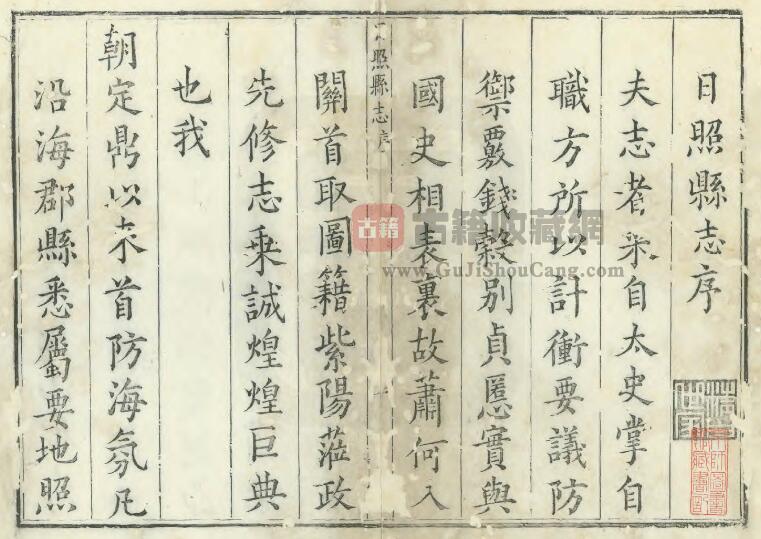 日照縣志序
夫志者采自太史掌自
職方所以計衝要議防
禦覈錢穀別貞慝實與
國史相表裏故蕭何入
照縣志序
一
關首取圖籍紫陽蒞政
先修志乘誠煌煌巨典
也我
朝定鼎以來首防海氛凡
沿海郡縣悉屬要地照
古籍
古籍收藏網
www.GuJiShouCang.com